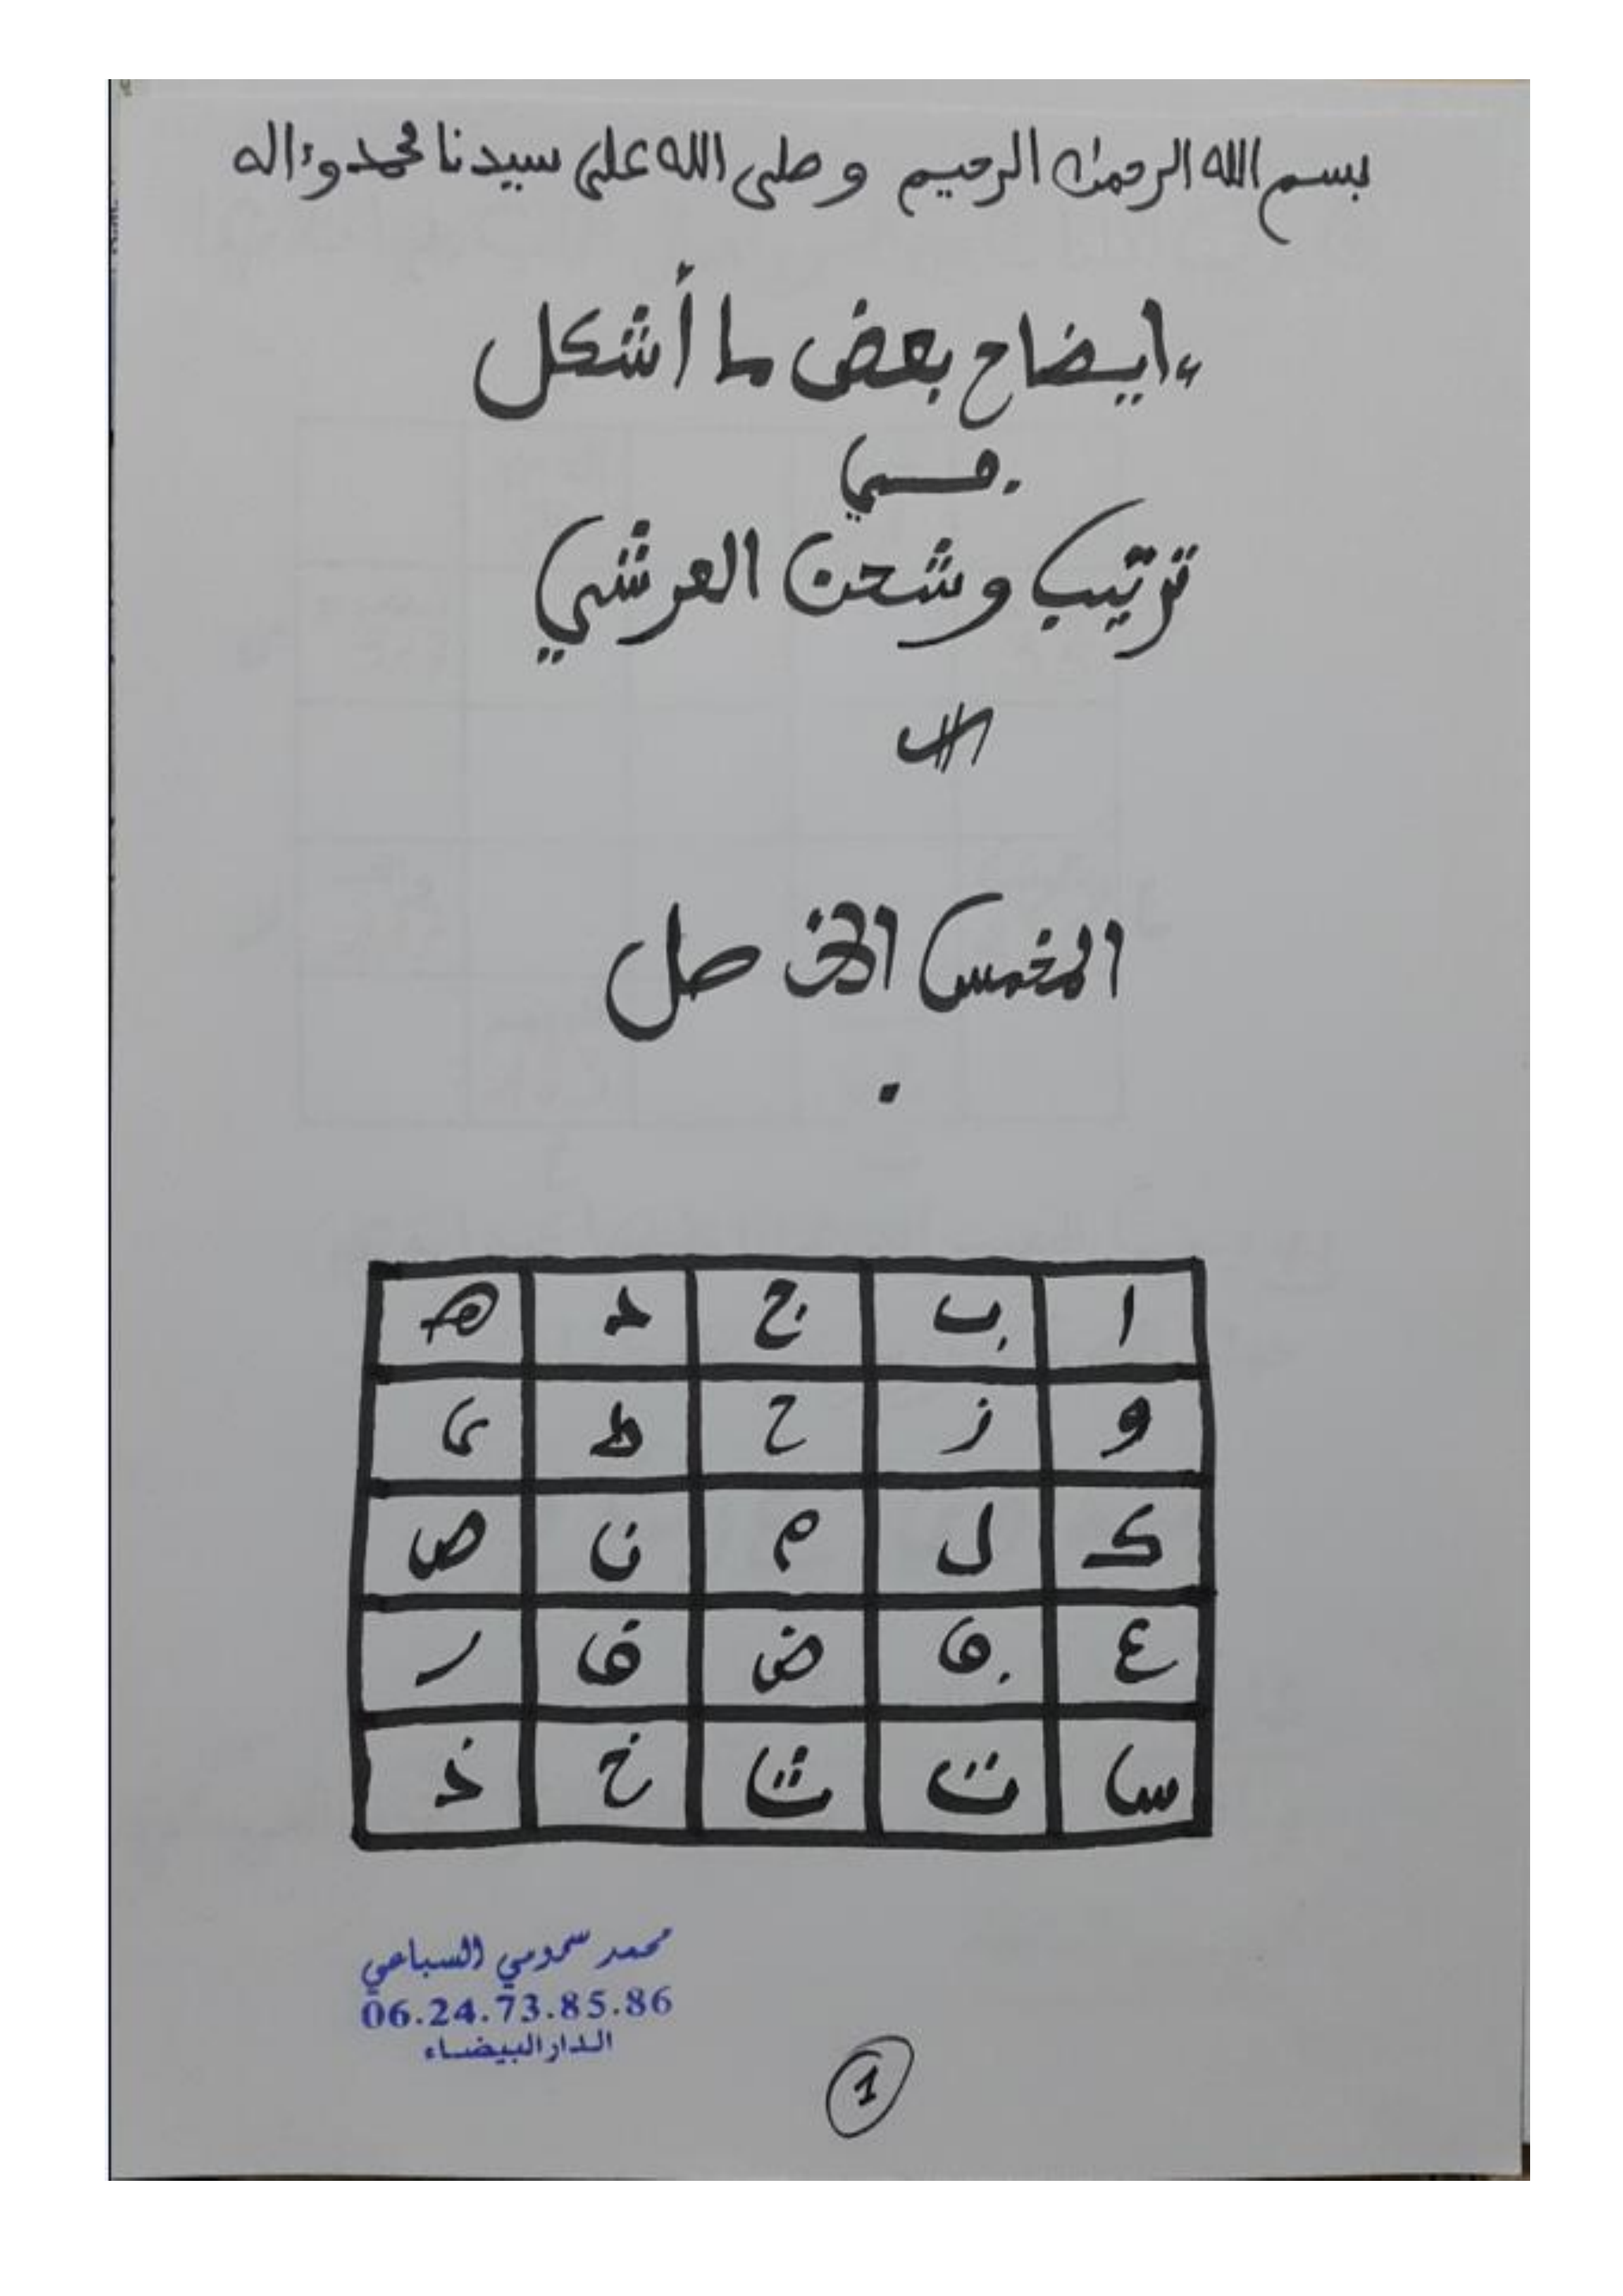 بسم الله الرحمن الرحيم وصلى الله على سيدنا محمد وءاله
ءايضاح بعض ما أشكل
في
ترتيب وشحن العرشي
المخمس
ا ب ج د ه
و ز ح ط ى
ك ل م ن ص
ع ڢ ض ف ر
س ت ث خ ذ
محمد سمومي السباعي
06.24.73.85.86
الدار البيضاء
1